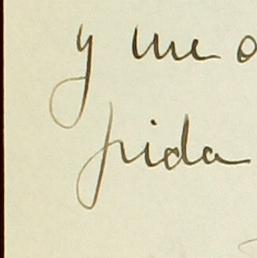 y me o
pida